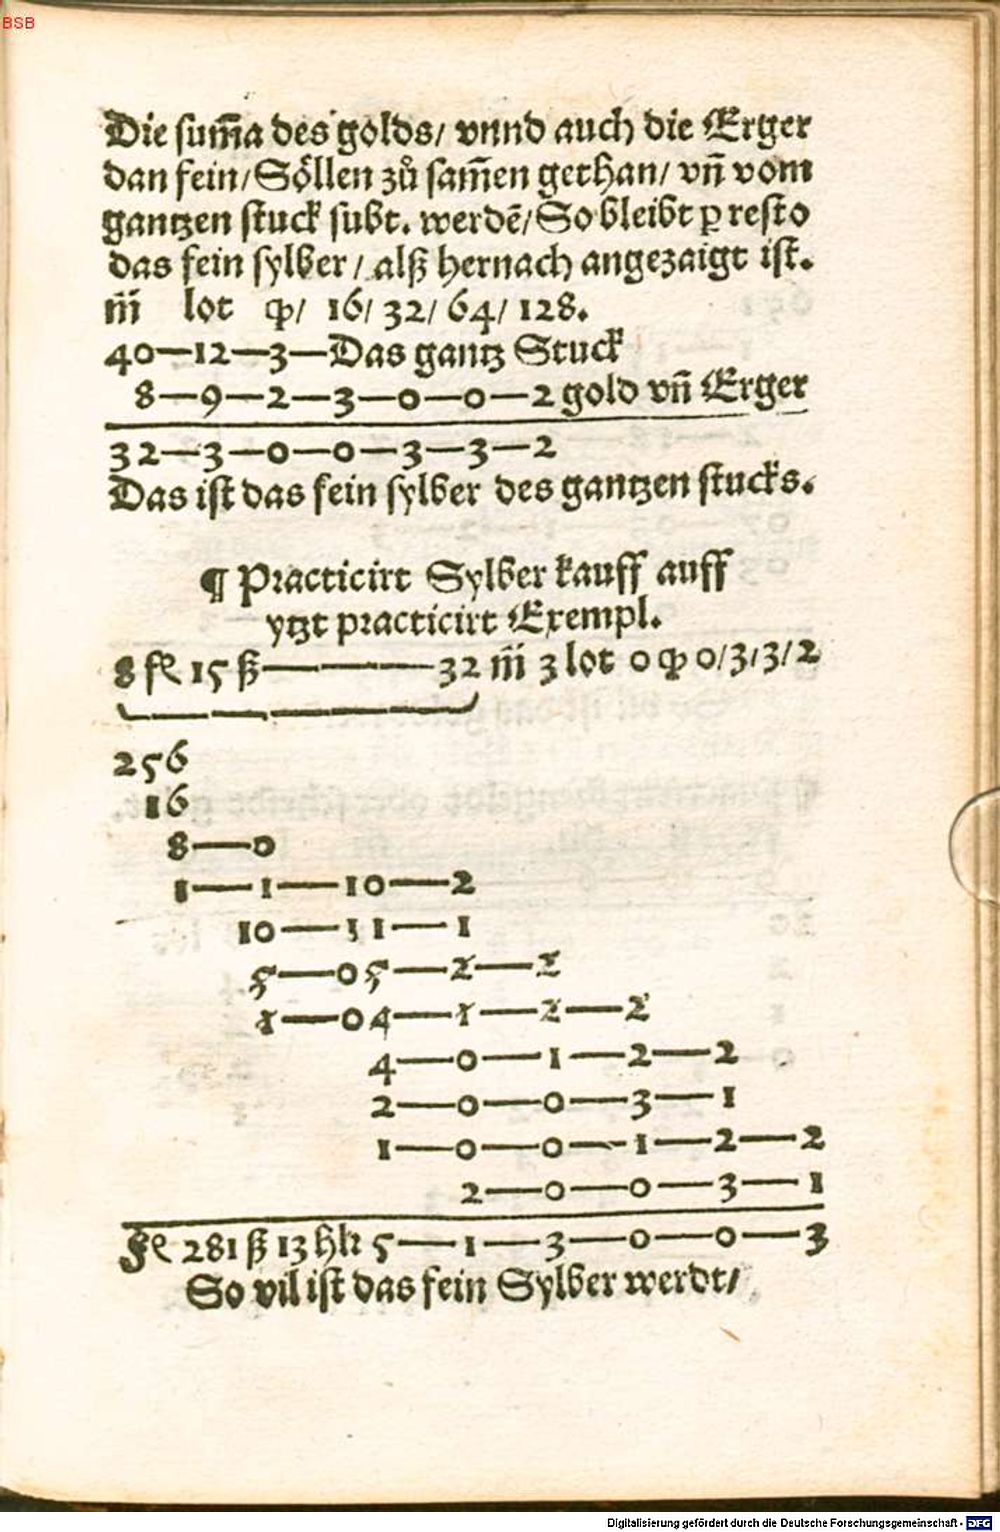 BSB
Die sum̄a des golds/ vnnd auch die Erger
dan fein/Söllen zů sam̄en gethan/ vn̄ vom
gantzen stuck subt. werdē/So bleibt ꝑ resto
das fein sylber/ alß hernach angezaigt ist.
m̄ lot qͥ/ 16/ 32/ 64/ 128.
40—12—3—Das gantz Stuck
8—9—2—3—0—0—2 gold vn̄ Erger
32—3—0—0—3—3—2
Das ist das fein sylber des gantzen stucks.
¶ Practicirt Sylber kauff auff
ytzt practicirt Exempl.
8 fl 15 ß———32 m̄ 3 lot 0 qͥ 0/3/3/2
256
16
8—0
1—1—10—2
10—11—1
5—05—2—2
1—04—1—2—2
4—0—1—2—2
2—0—0—3—1
1—0—0—1—2—2
2—0—0—3—1
Fl 281 ß 13 hlr 5—1—3—0—0—3
So vil ist das fein Sylber werdt/
Digitalisierung gefördert durch die Deutsche Forschungsgemeinschaft - DFG